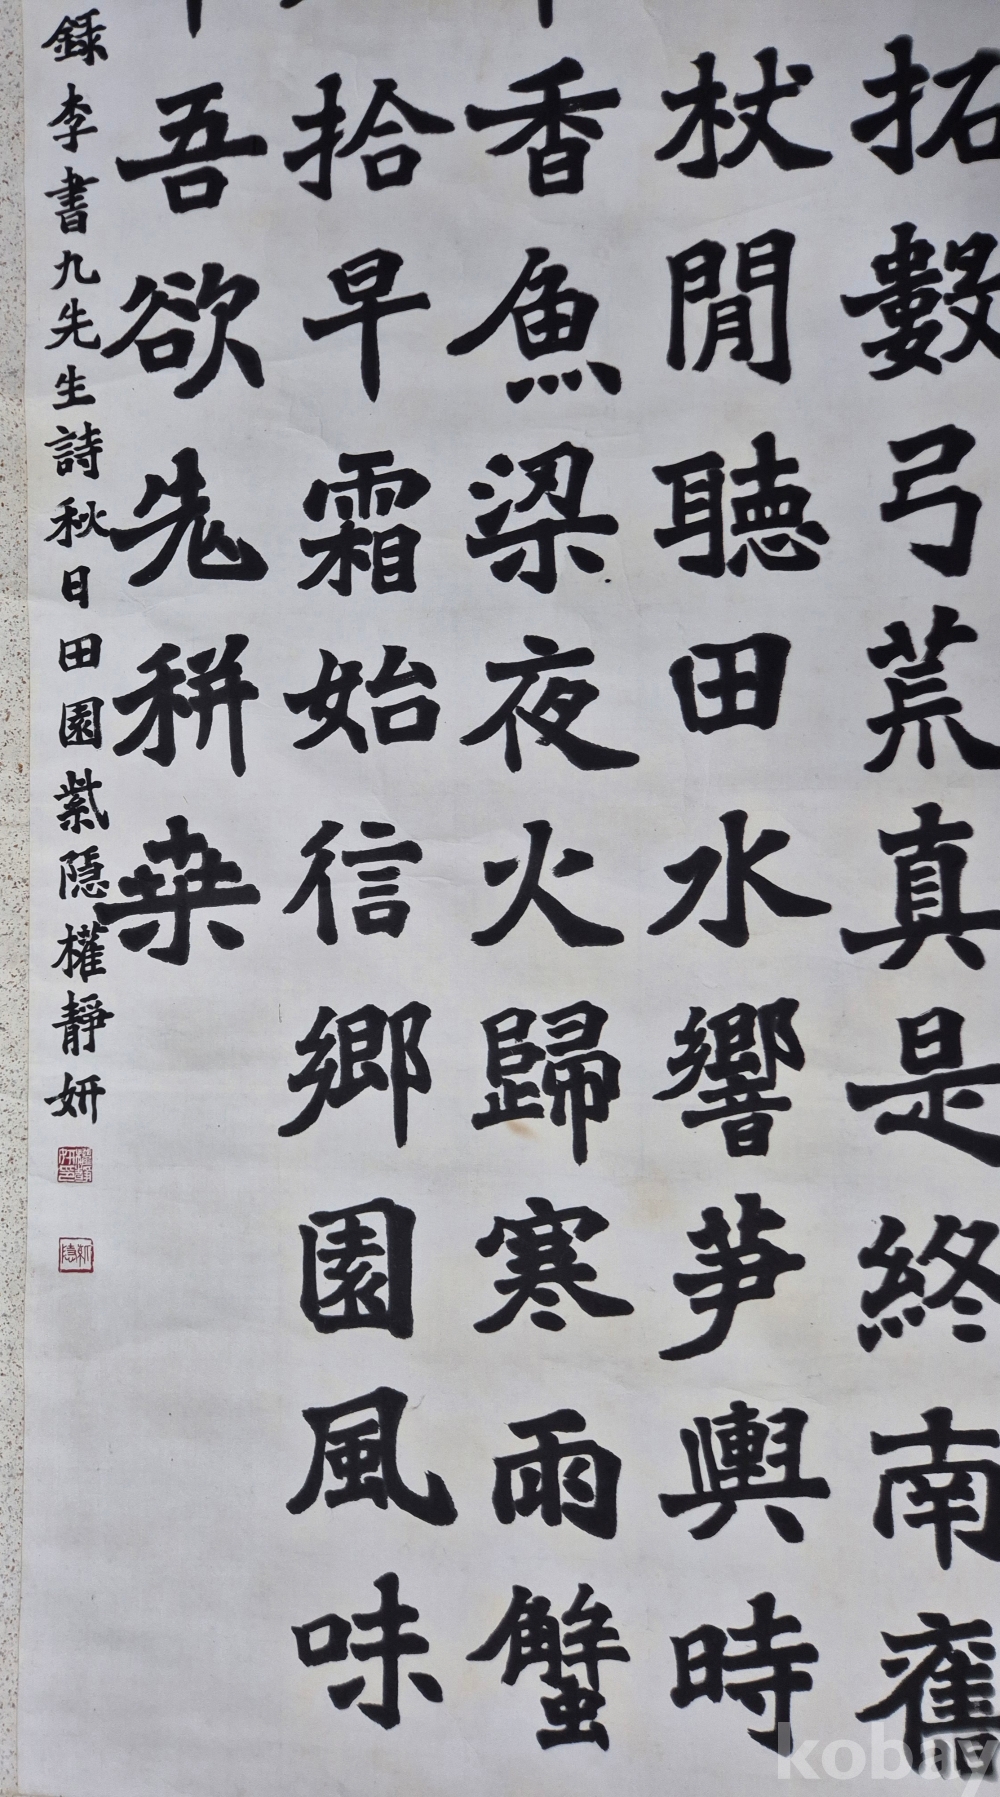 拓數弓荒真是終南舊
杖閒聽田水響筍輿時
香魚梁夜火歸寒雨蟹
拾早霜始信鄉園風味
吾欲先耕桒
錄李書九先生詩秋日田園紫隱權靜妍
kobay